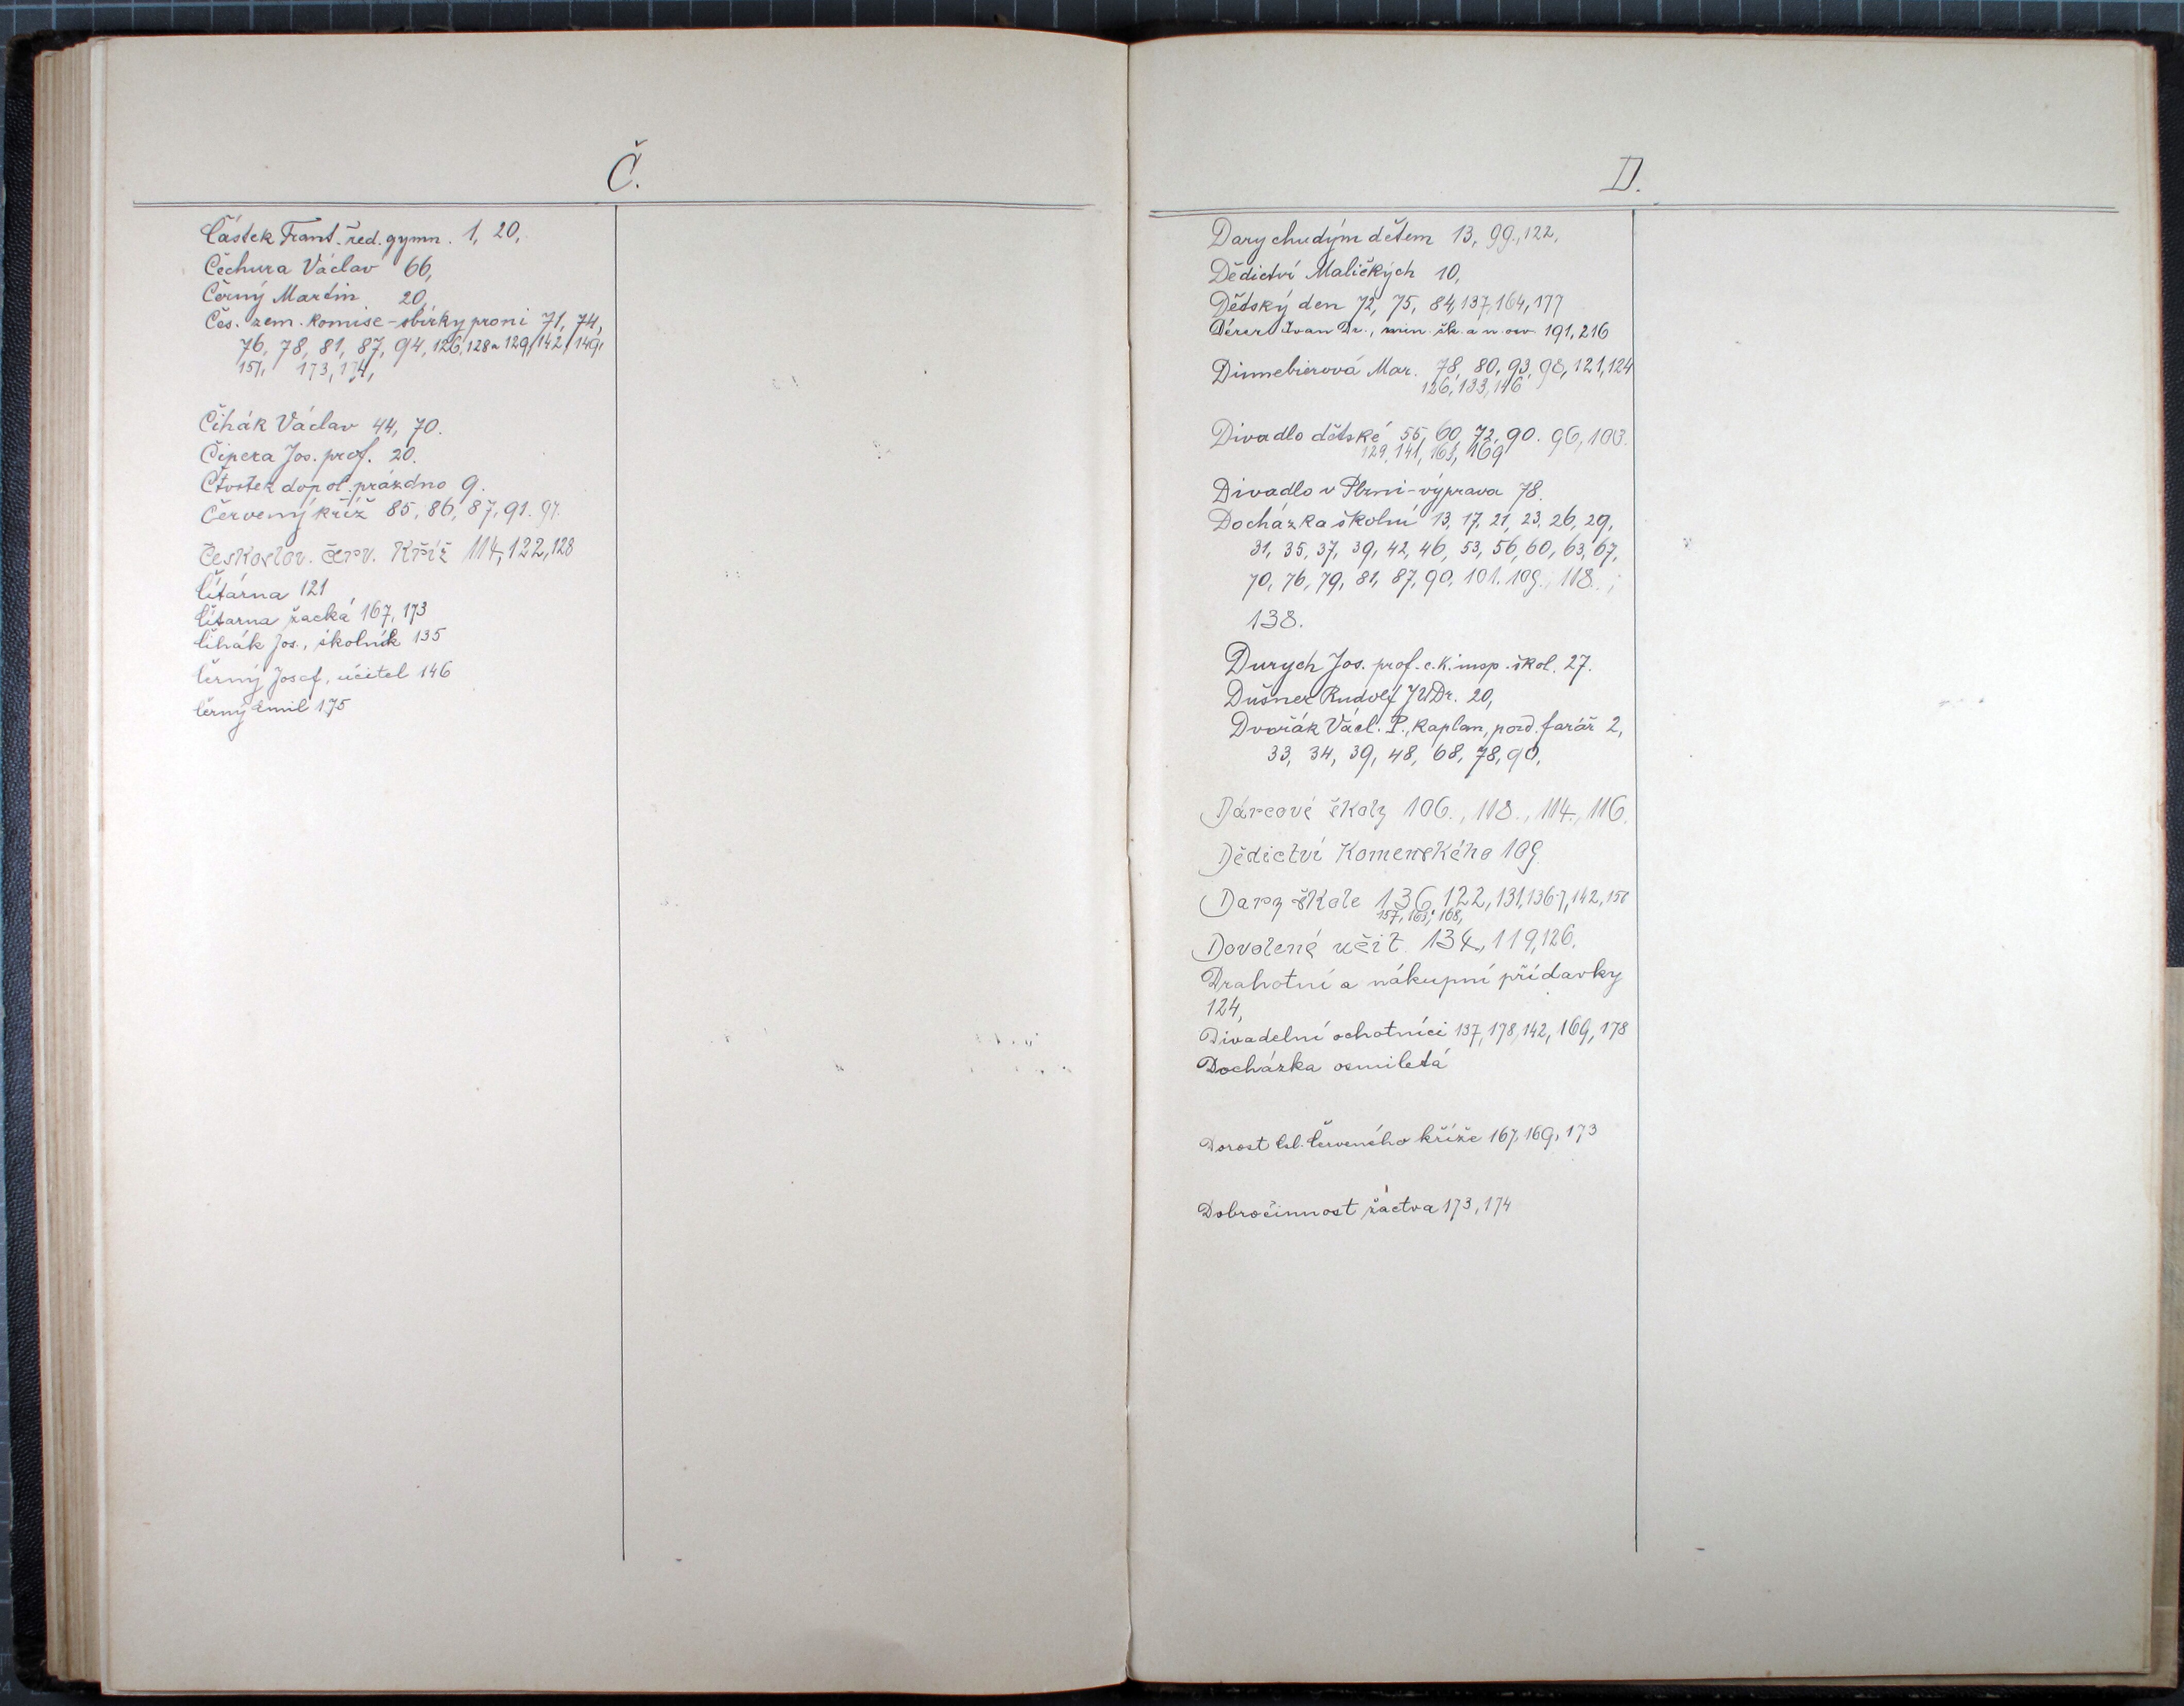 Č.
Částek Frant. řed. gymn. 1, 20,
Čechura Václav 66,
Černý Martin 20,
Čes. zem. komise - sbírky pro ni 71, 74,
76, 78, 81, 87, 94, 126, 128 a 129, 142, 149,
151, 173, 174,
Čihák Václav 44, 70.
Čipera Jos. prof. 20.
Čtvrtek dopol. prázdno 9.
Červený kříž 85, 86, 87, 91. 97.
Českoslov. červ. Kříž 114, 122, 128
Čítárna 121
Čítárna žacká 167, 173
Čihák Jos., školník 135
Černý Josef, učitel 146
Černý Emil 175
D.
Dary chudým dětem 13, 99., 122,
Dědictví Maličkých 10,
Dětský den 72, 75, 84, 137, 164, 177
Dérer Ivan Dr., min. šk. a n. osv. 191, 216
Dinnebierová Mar. 78, 80, 93, 98, 121, 124
126, 133, 146
Divadlo dětské 55, 60, 72, 90. 96, 103.
129, 141, 163, 169
Divadlo v Plzni - výprava 78.
Docházka školní 13, 17, 21, 23, 26, 29,
31, 35, 37, 39, 42, 46, 53, 56, 60, 63, 67,
70, 76, 79, 81, 87, 90, 101. 109., 118.,
138.
Durych Jos. prof. c. k. insp. škol. 27.
Dušner Rudolf JUDr. 20,
Dvořák Václ. P., kaplan, pozd. farář 2,
33, 34, 39, 48, 68, 78, 90,
Dárcové školy 106., 118., 114., 116.
Dědictví Komenského 109
Dary škole 136, 122, 131, 136-7, 142,
157, 163, 168,
Dovolená učit. 134., 119, 126.
Drahotní a nákupní přídavky
124,
Divadelní ochotníci 137, 178, 142, 169, 178
Docházka osmiletá
Dorost čsl. Červeného kříže 167, 169, 173
Dobročinnost žáctva 173, 174